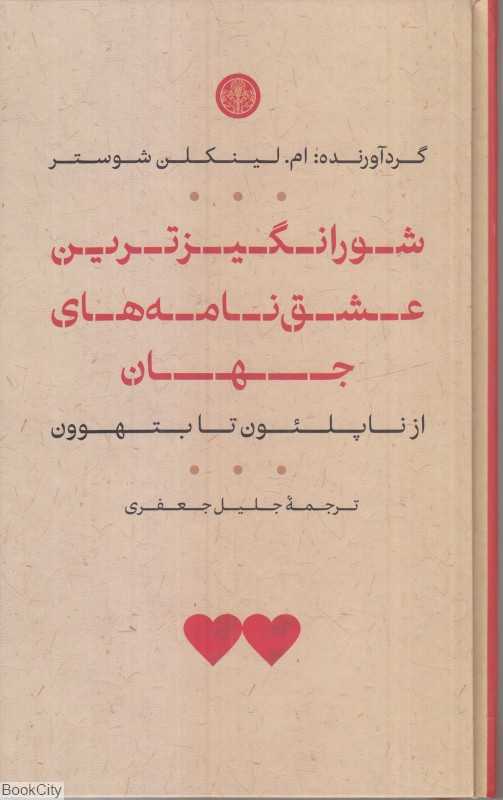 گردآورنده: ام. لینکلن شوستر
شورانگیزترین
عشق‌نامه‌های
جهان
از ناپلئون تا بتهوون
ترجمهٔ جلیل جعفری
BookCity